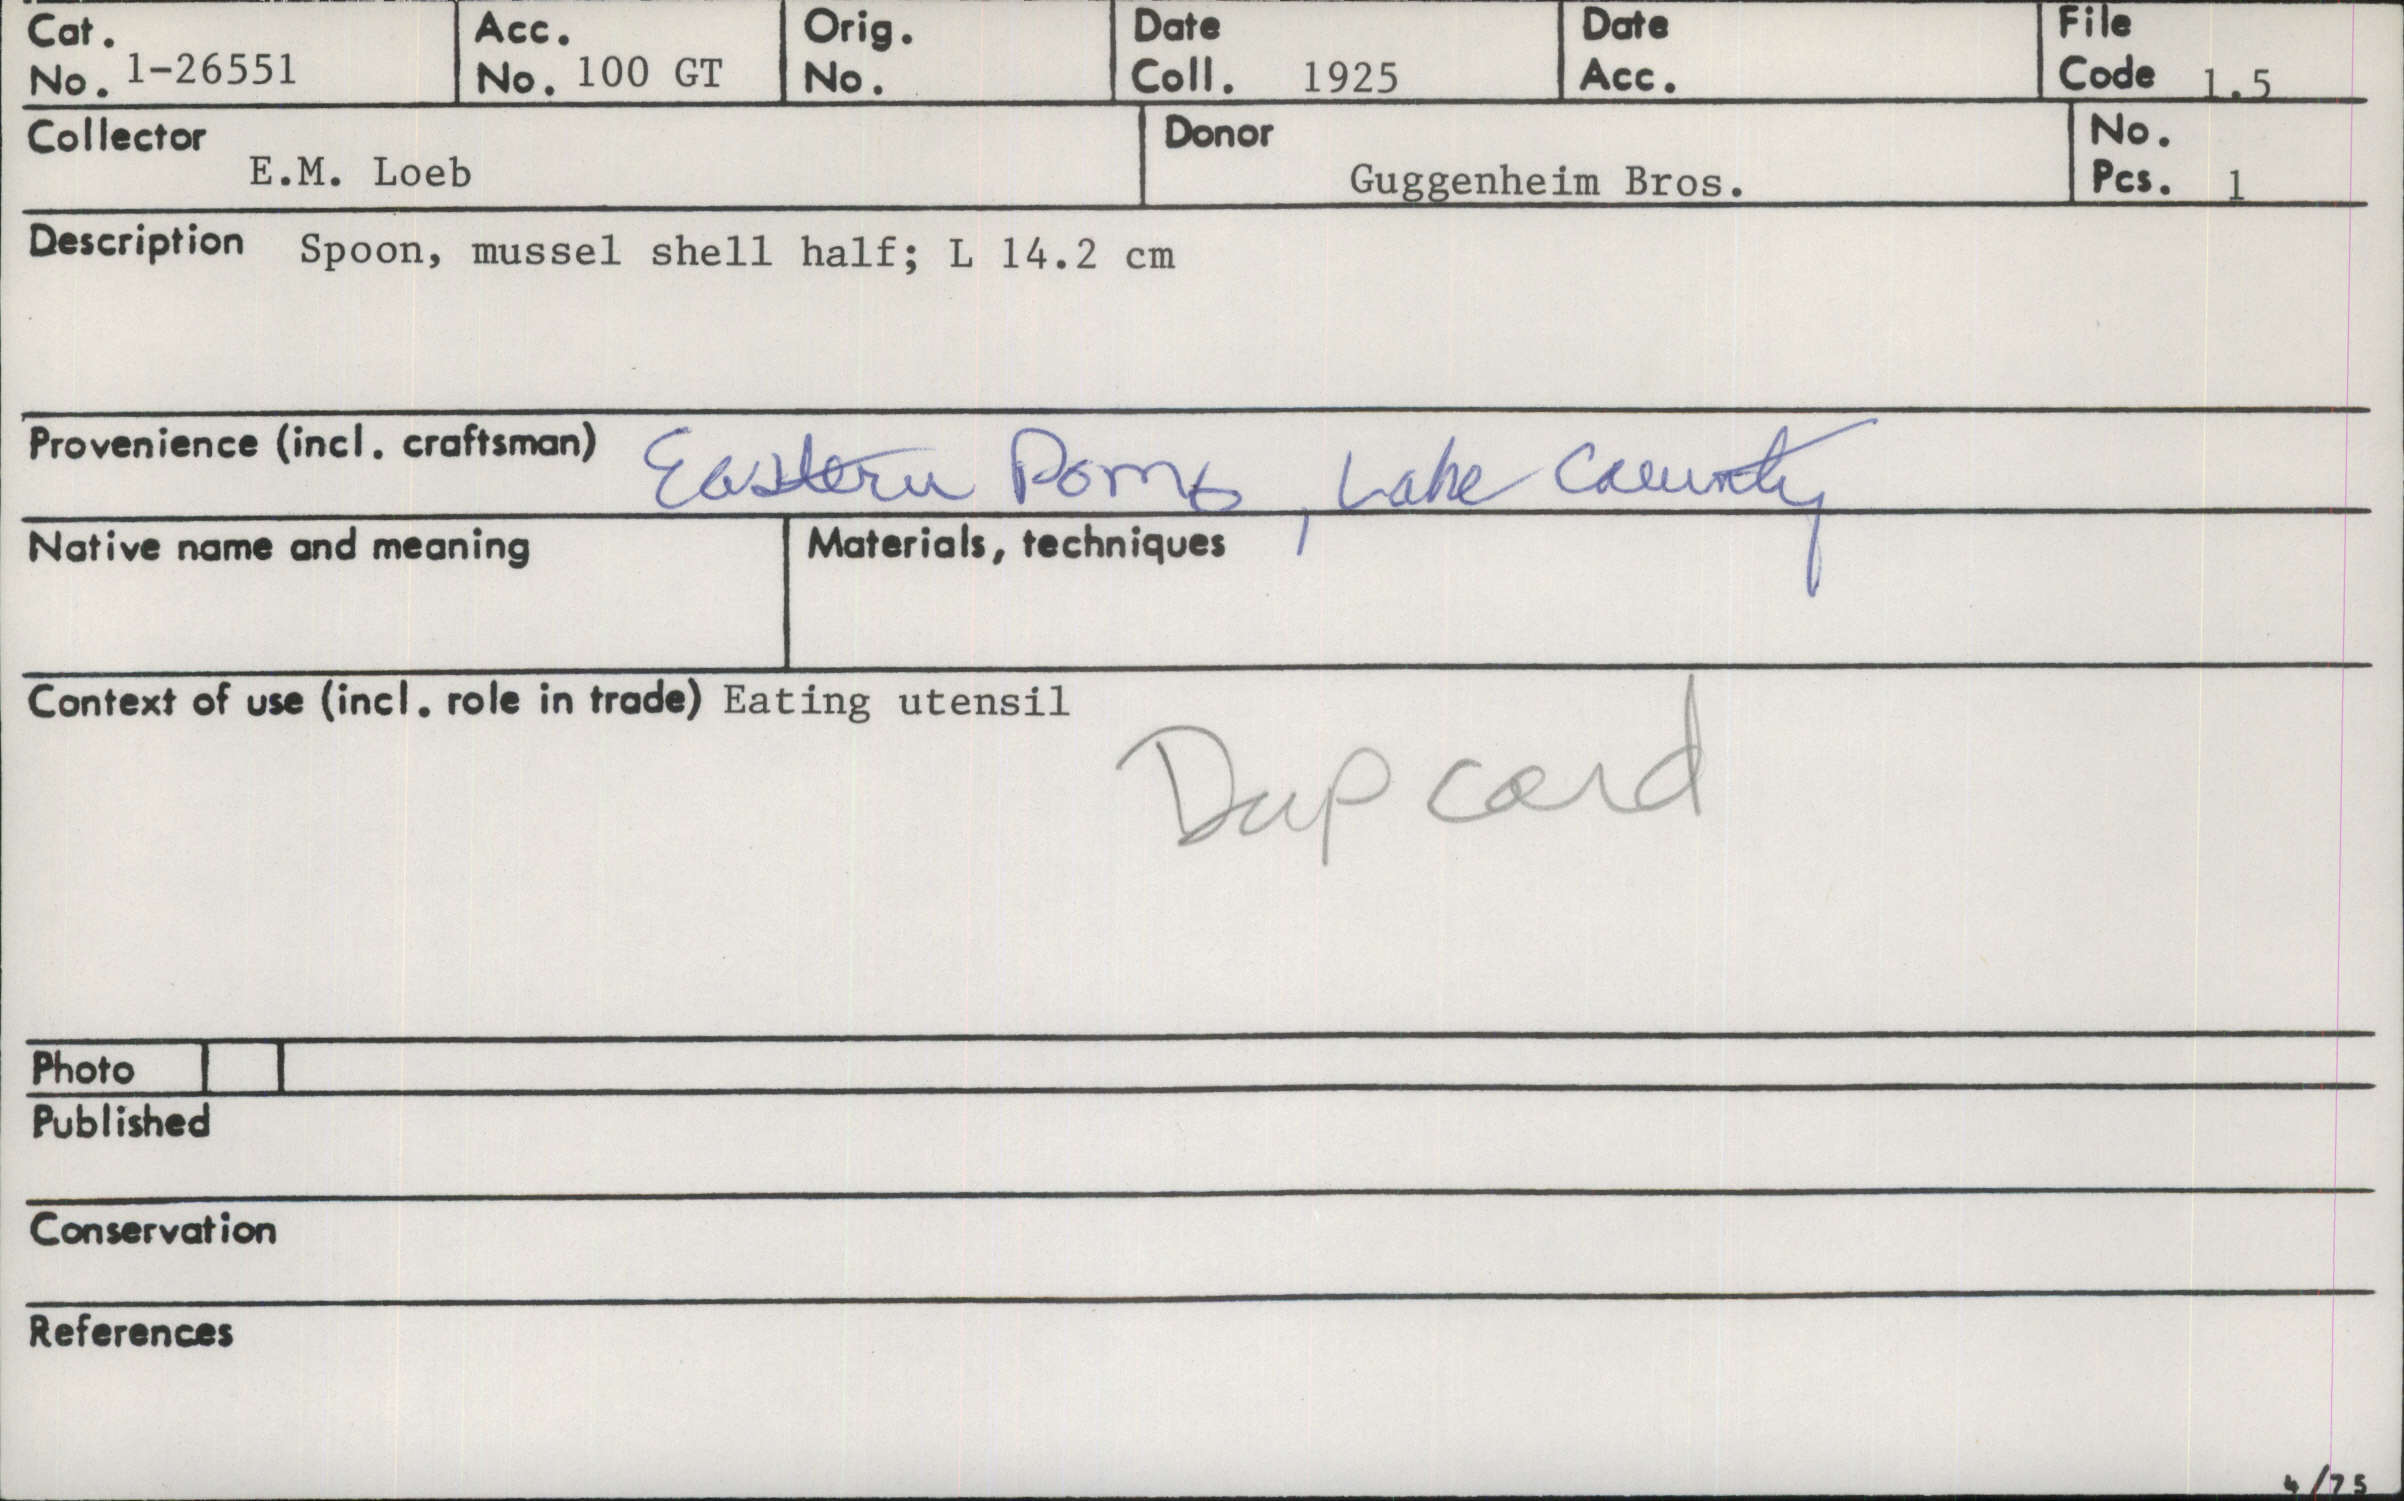 Cat. No. 1-26551
Acc. No. 100 GT
Orig. No.
Date Coll. 1925
Date Acc.
File Code 1.5
Collector E.M. Loeb
Donor Guggenheim Bros.
No. Pcs. 1
Description Spoon, mussel shell half; L 14.2 cm
Provenience (incl. craftsman) Eastern Pomo, Lake County
Native name and meaning
Materials, techniques
Context of use (incl. role in trade) Eating utensil
Dup card
Photo
Published
Conservation
References
4/75